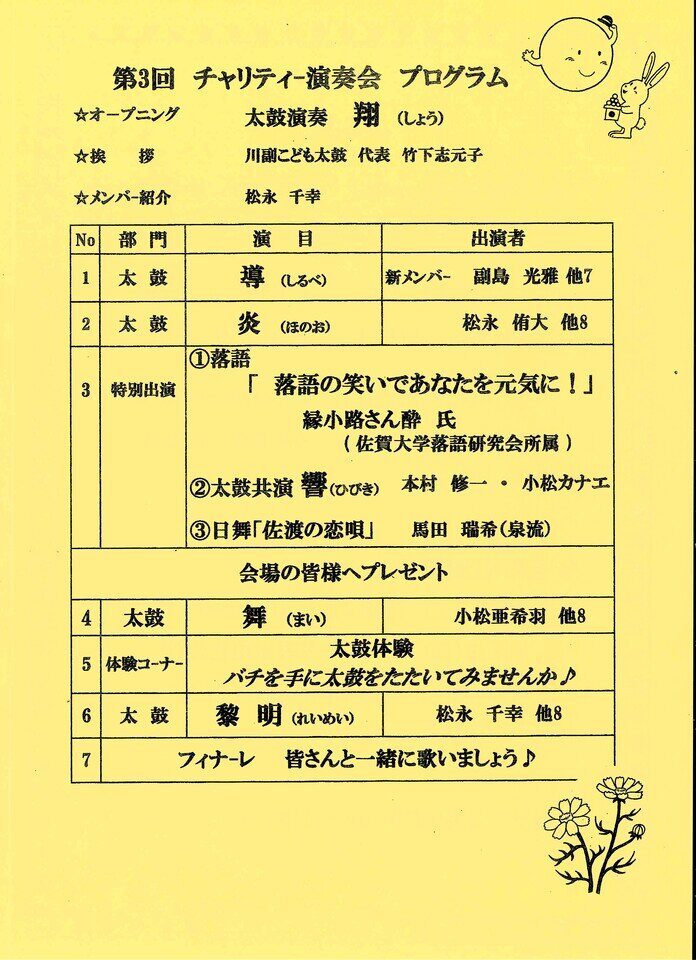 第3回 チャリティー演奏会 プログラム
☆オープニング 太鼓演奏 翔(しょう)
☆挨 拶 川副こども太鼓 代表 竹下志元子
☆メンバー紹介 松永 千幸
No 部 門 演 目 出演者
1 太 鼓 導 (しるべ) 新メンバー 副島 光雅 他7
2 太 鼓 炎 (ほのお) 松永 侑大 他8
3 特別出演 ①落語
「 落語の笑いであなたを元気に!」
縁小路さん酔 氏
( 佐賀大学落語研究会所属 )
②太鼓共演 響(ひびき) 本村 修一 ・ 小松カナエ
③日舞「佐渡の恋唄」 馬田 瑞希(泉流)
会場の皆様へプレゼント
4 太鼓 舞 (まい) 小松亜希羽 他8
5 体験コーナー 太鼓体験
バチを手に太鼓をたたいてみませんか♪
6 太 鼓 黎 明(れいめい) 松永 千幸 他8
7 フィナーレ 皆さんと一緒に歌いましょう♪